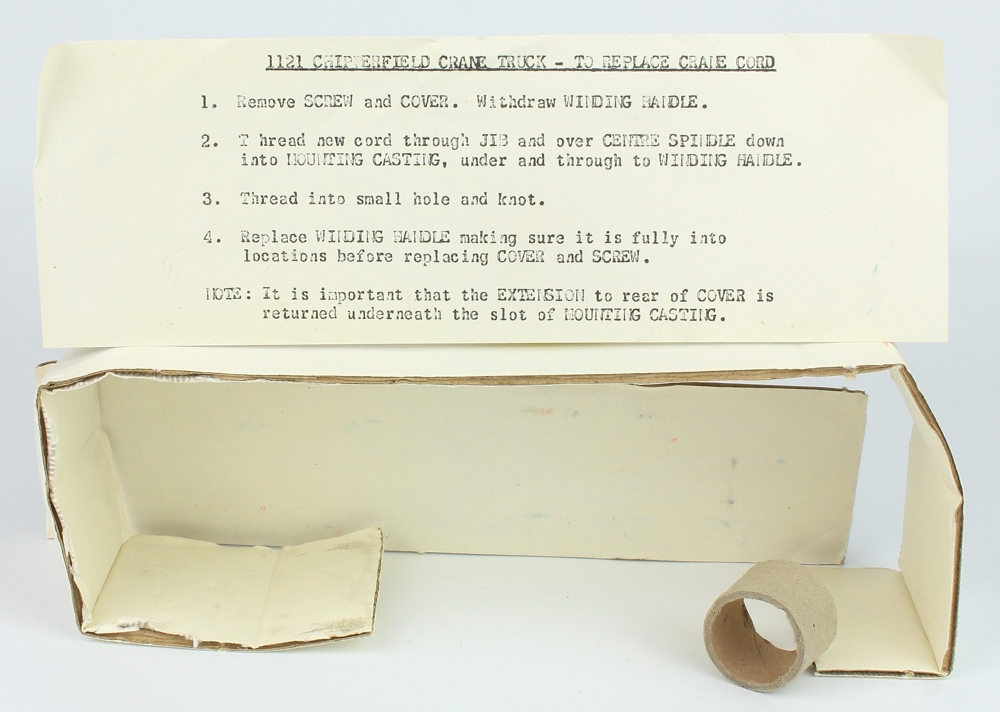 1121 CHIPPERFIELD CRANE TRUCK - TO REPLACE CRANE CORD
1. Remove SCREW and COVER. Withdraw WINDING HANDLE.
2. T hread new cord through JIB and over CENTRE SPINDLE down
into MOUNTING CASTING, under and through to WINDING HANDLE.
3. Thread into small hole and knot.
4. Replace WINDING HANDLE making sure it is fully into
locations before replacing COVER and SCREW.
NOTE: It is important that the EXTENSION to rear of COVER is
returned underneath the slot of MOUNTING CASTING.